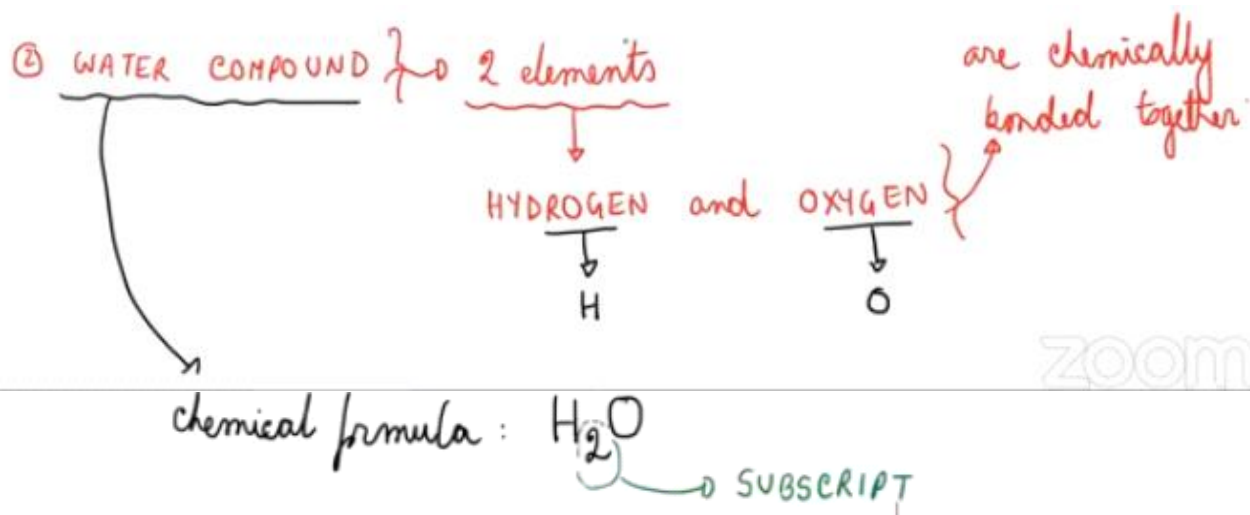 ② WATER COMPOUND } → 2 elements
are chemically
bonded together
HYDROGEN and OXYGEN }
H O
zoom
chemical formula : H₂O
SUBSCRIPT